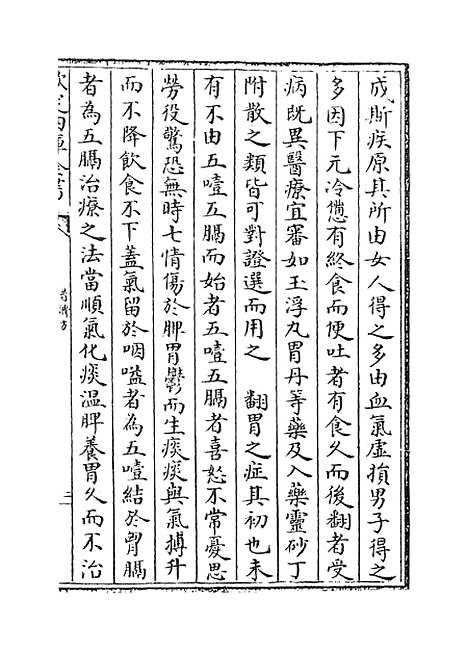 成斯疾原其所由女人得之多由血氣虛損男子得之
多因下元冷憊有終食而便吐者有食久而後翻者受
病既異醫療宜審如玉浮丸胃丹等藥及入藥靈砂丁
附散之類皆可對證選而用之　翻胃之症其初也未
有不由五噎五膈而始者五噎五膈者喜怒不常憂思
勞役驚恐無時七情傷於脾胃鬱而生痰痰與氣搏升
而不降飲食不下蓋氣留於咽嗌者為五噎結於胃膈
者為五膈治療之法當順氣化痰温脾養胃久而不治
欽定四庫全書
普濟方
二